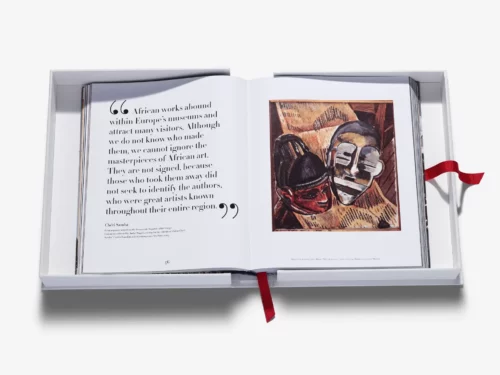 “ African works abound
within Europe’s museums and
attract many visitors. Although
we do not know who made
them, we cannot ignore the
masterpieces of African art.
They are not signed, because
those who took them away did
not seek to identify the authors,
who were great artists known
throughout their entire region. ”